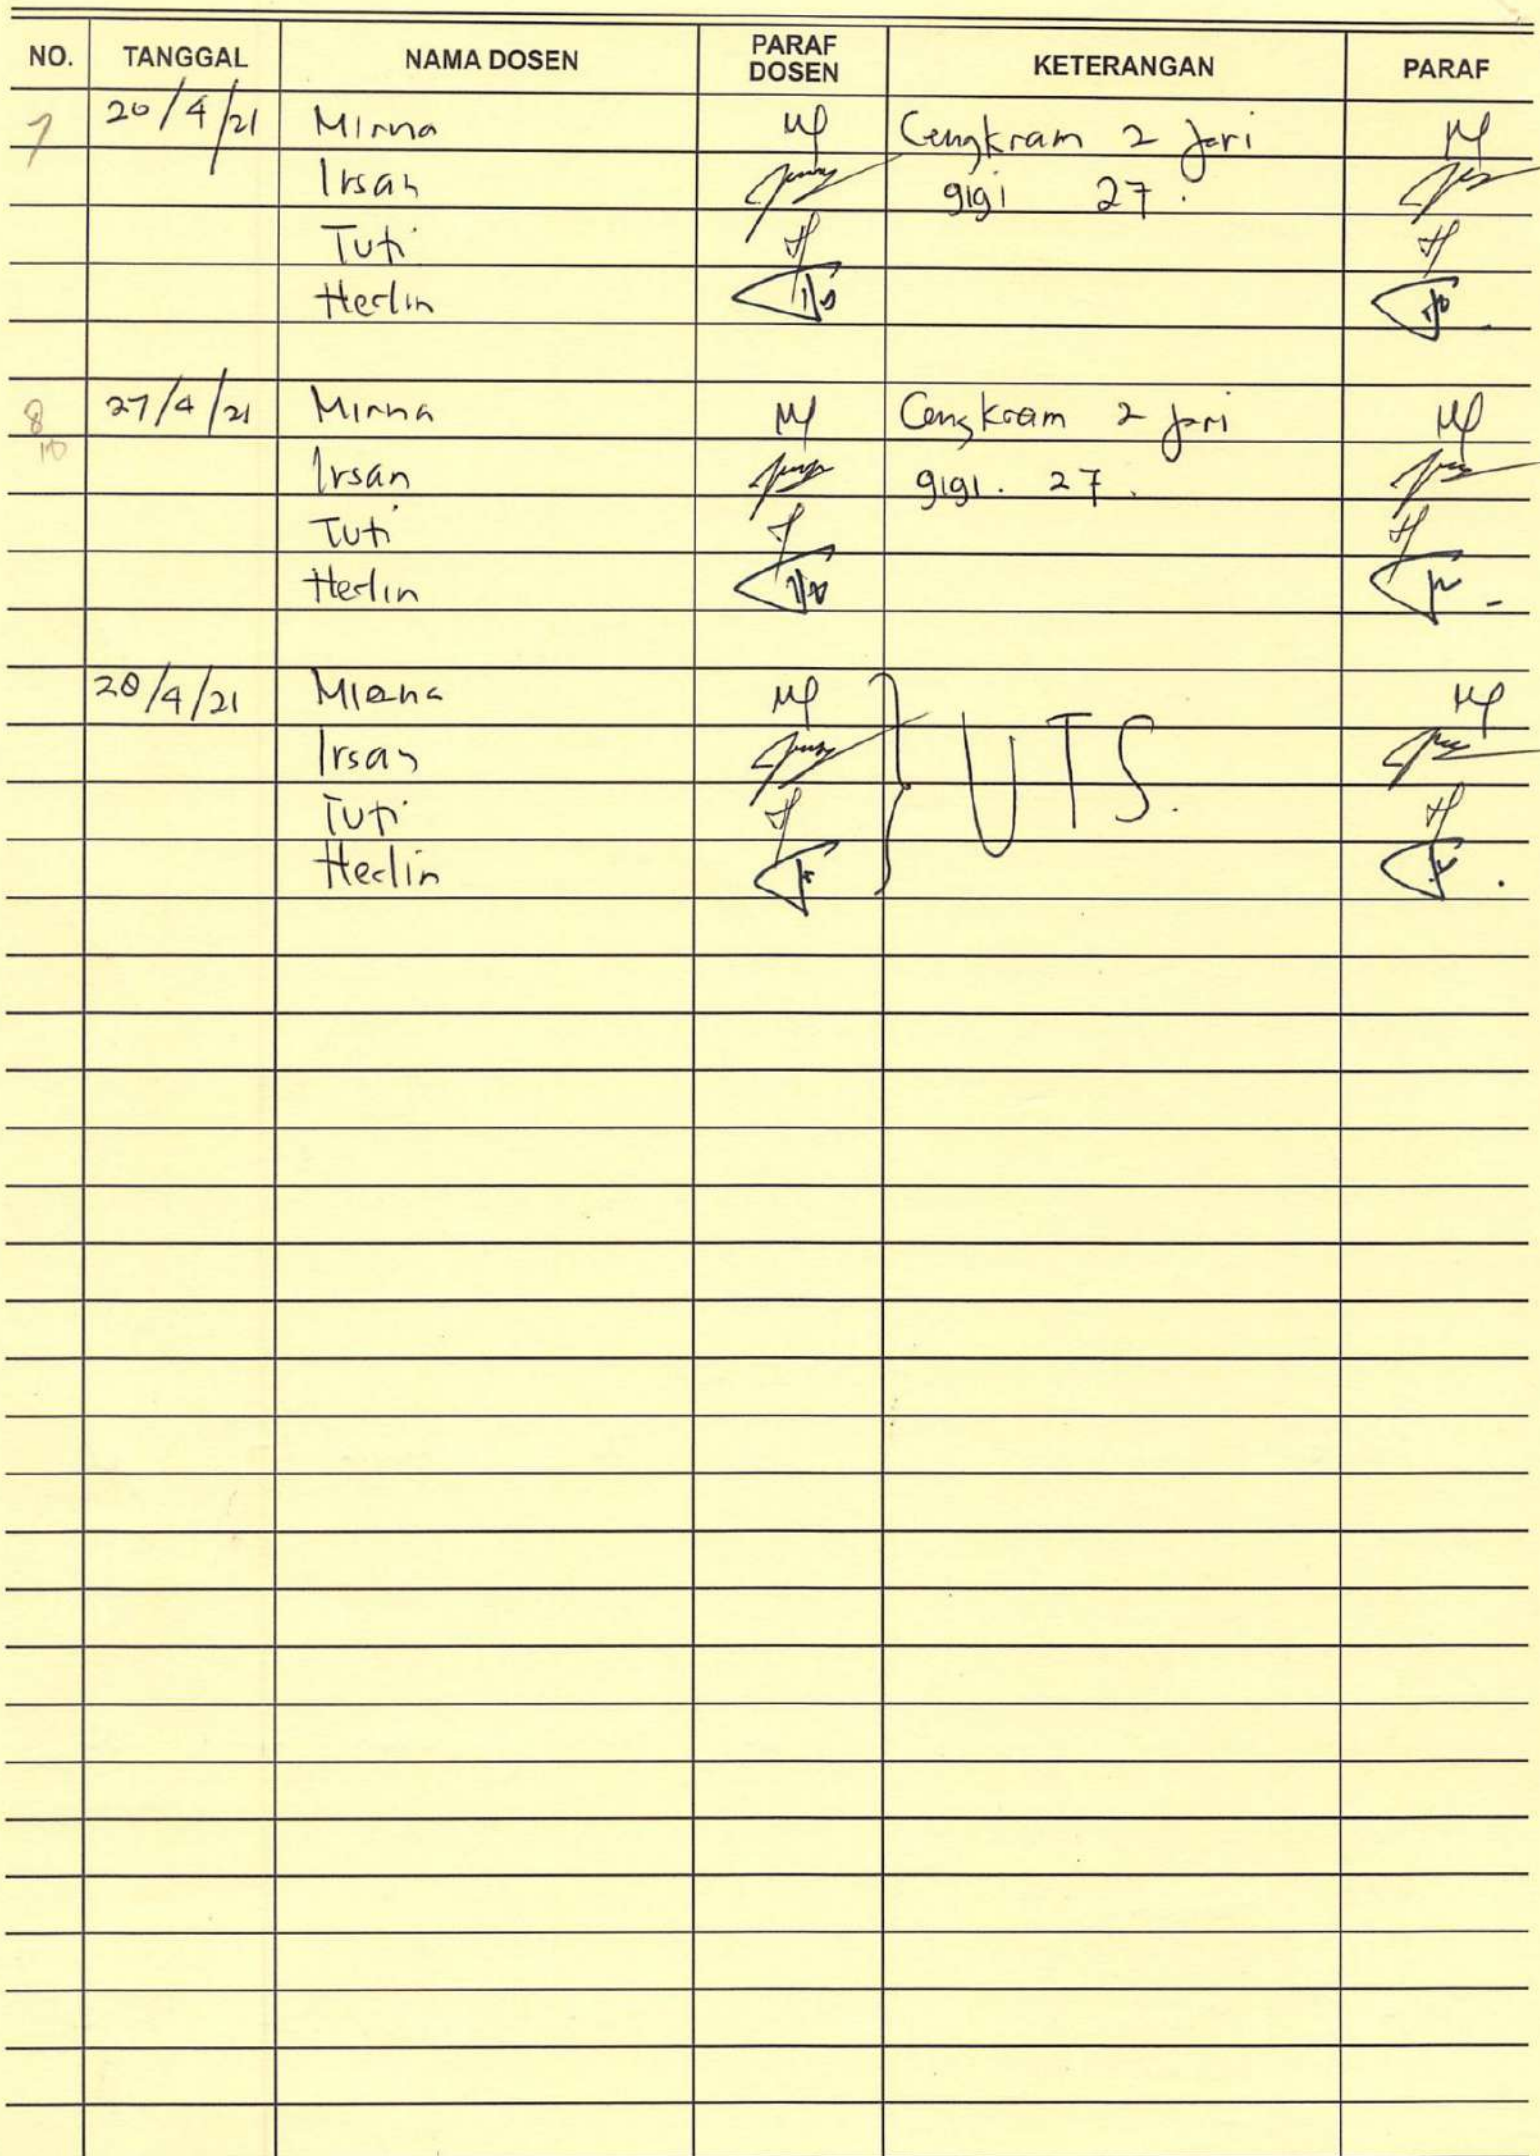 NO. TANGGAL NAMA DOSEN PARAF DOSEN KETERANGAN PARAF
7 20/4/21 Mirna Cengkram 2 Jari
Irsan gigi 27.
Tuti
Herlin
8 27/4/21 Mirna Cengkram 2 jari
10 Irsan gigi. 27.
Tuti
Herlin
28/4/21 Mirna
Irsan UTS.
Tuti
Herlin